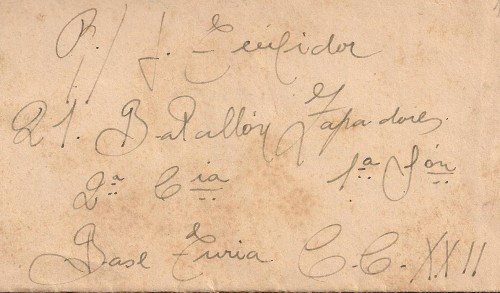 R./ J. Emilidor
21. Batallón Zapadores.
2ª Cia 1ª Són
Base Turia C.C. XXII